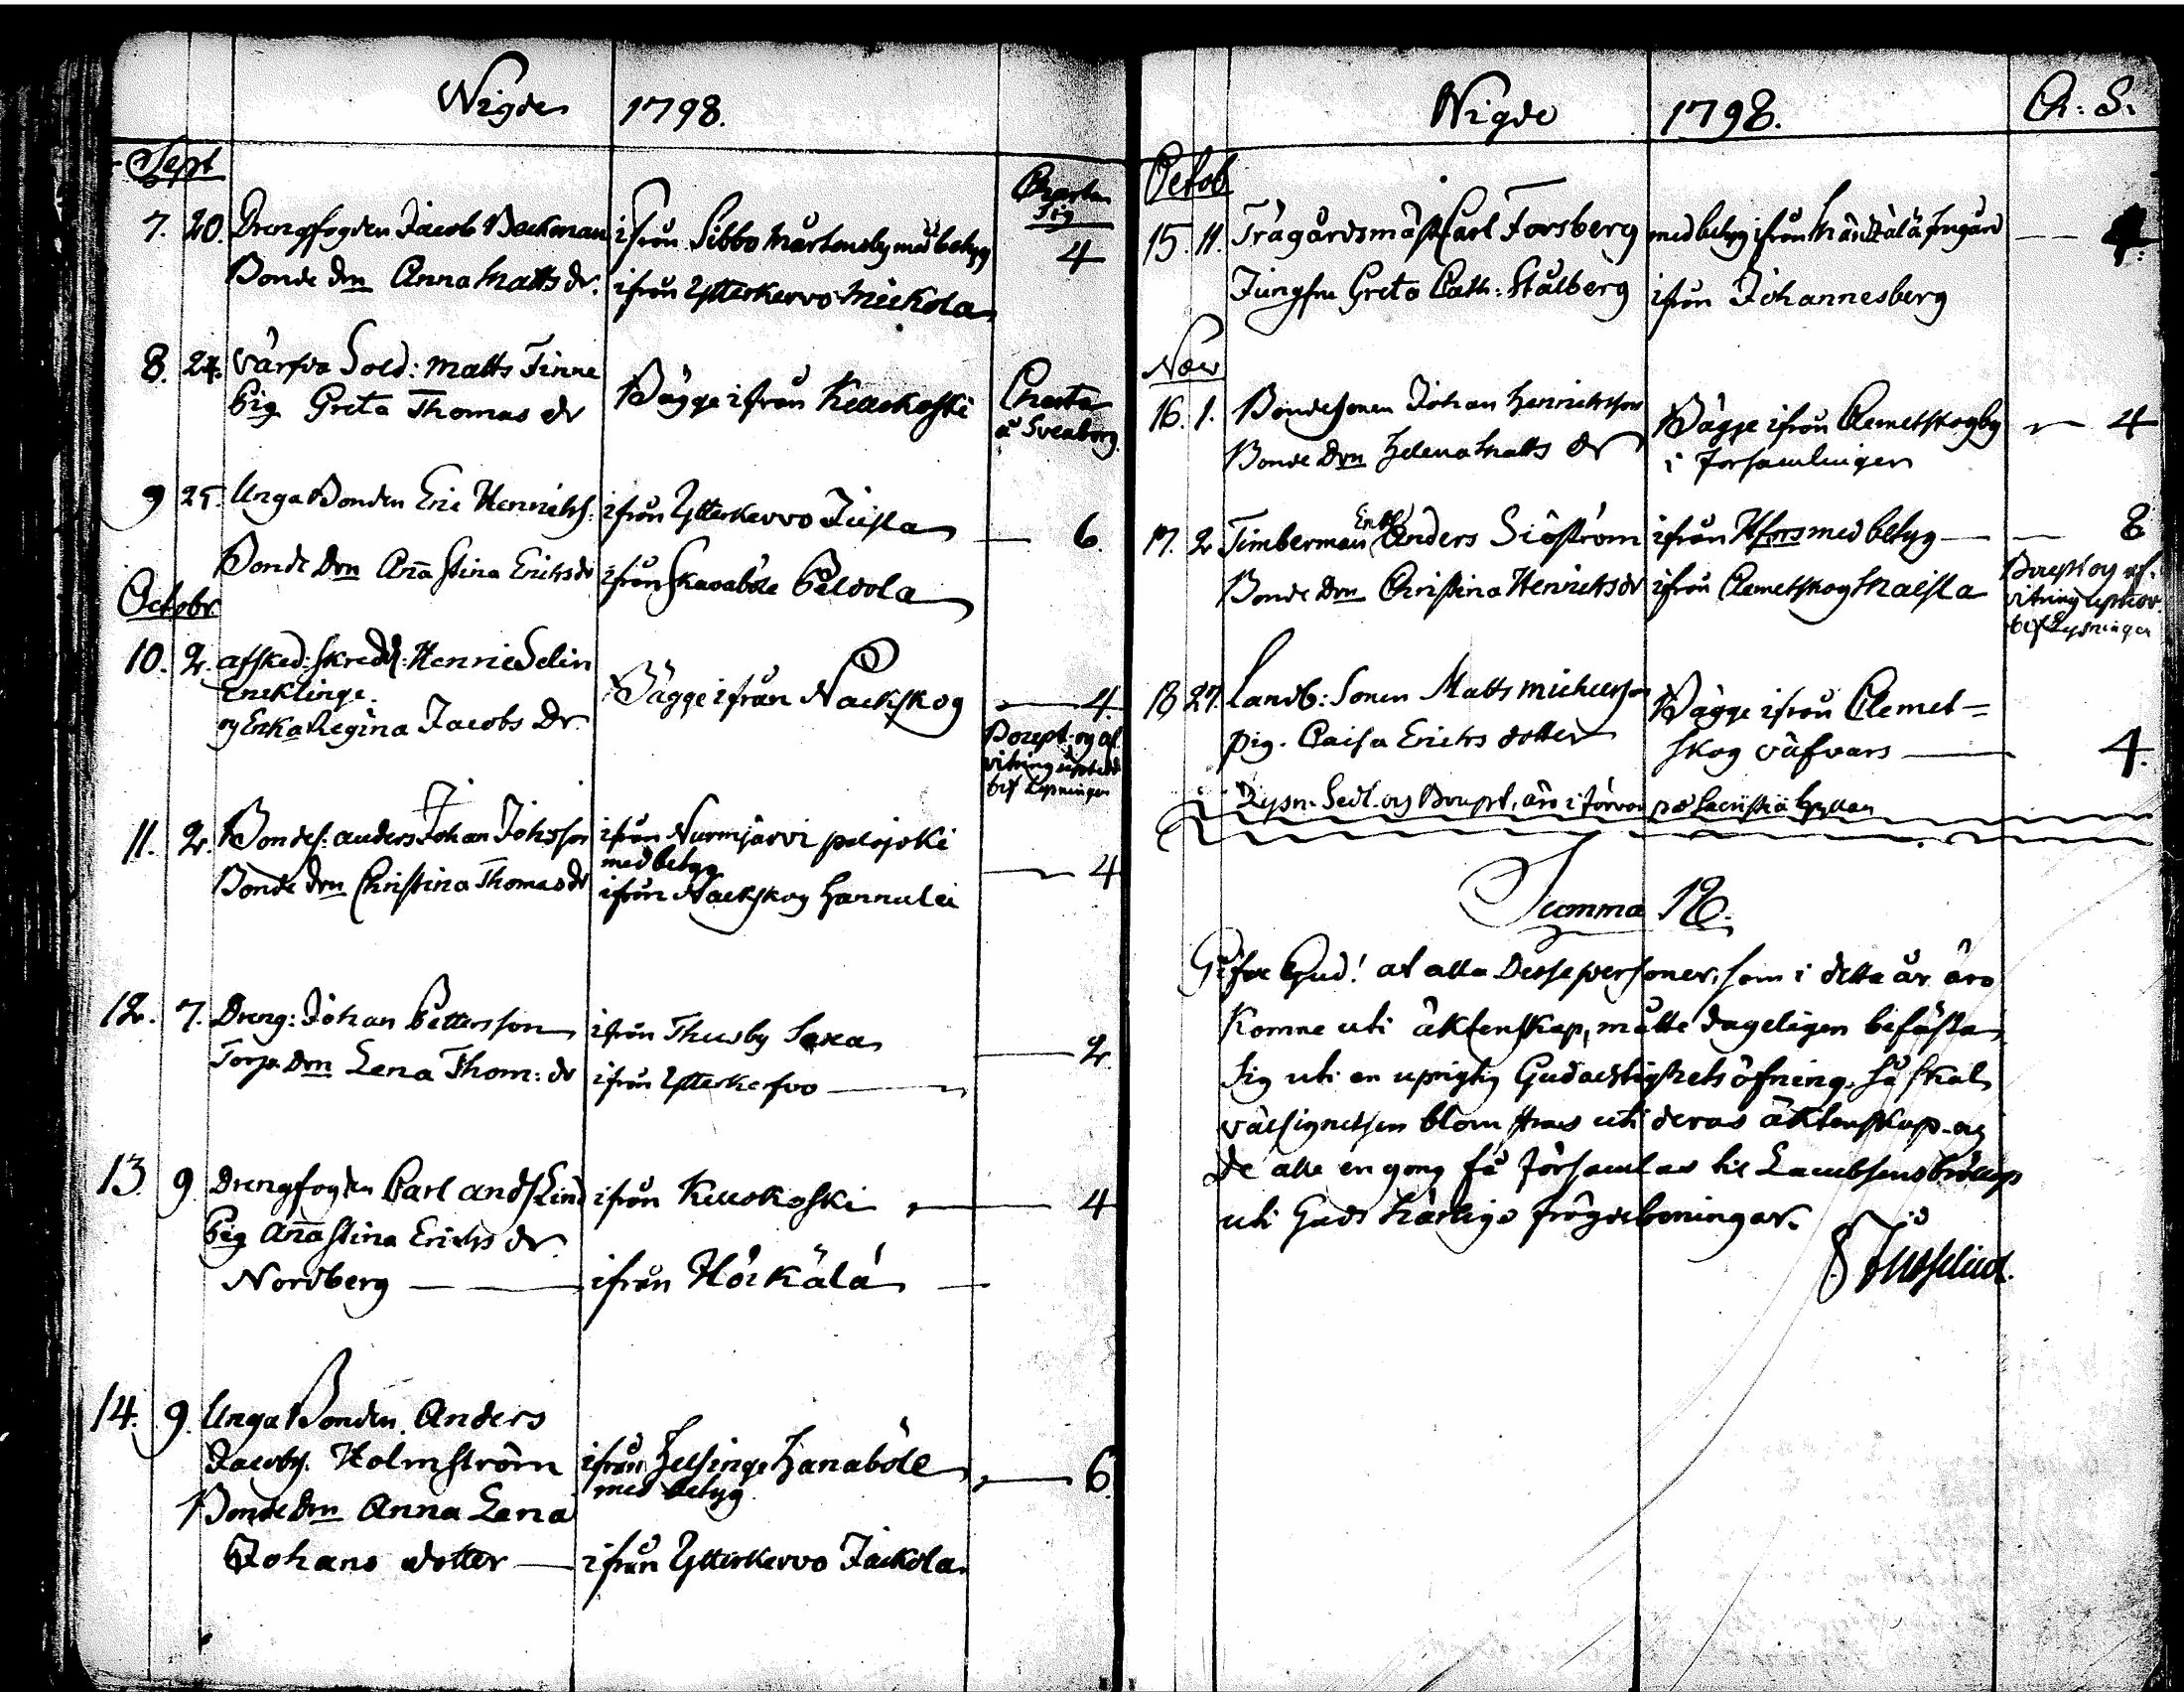 Wigde 1798.
Sept
Charta
Sig
7. 20. Drengfogden Jacob Backman ifrån Sibbo Mårtensby med betyg
4
Bonde drn Anna Matts dr. ifrån Ytterkervo Mickola
8. 24. Värfva Sold: Matts Finne
Pig Greta Thomas dr
Bägge ifrån Kellokoski
Charta
å Sveaborg
9 25. Unga Bonden Eric Henriks: ifrån Ytterkervo Jusla — 6.
Bonde drn Aña Stina Eriks dr ifrån Skavaböle Peldola
Octobr
10. 2. afsked: skredd: Henric Selin
Encklinge.
og Enka Regina Jacobs Dr
Bägge ifrån Nackskog — 4.
Boupt. og af
vitring
vif Lysningen
11. 2. Bondes: anders Johan Johsson ifrån Nurmjärvi palojoki
med betyg
4
Bonde drn Christina Thomas dr ifrån Nackskog Hannulei
12. 7. Dreng: Johan Pettersson ifrån Thusby Saxa — 2.
Torp. drn Lena Thom: dr ifrån Ytterkerfvo —
13. 9. Drengfogden Carl Lind ifrån Kellokoski — 4
Pig Aña Stina Eriks dr
Nordberg — ifrån Hörkälä —
14. 9. Unga Bonden. Anders
Jacobs. Holmström ifrån Helsinge Hanaböle — 6.
med betyg
Bonde drn Anna Lena
Johans dotter — ifrån Ytterkervo Jackola.
Wigde 1798. Ch: S:
Octob
15. 11. Trägårdsmäst Carl Forsberg med betyg ifrån Mändtsälä frugård — 4.
Jungfru Greta Cath: Stålberg ifrån Johannesberg
Nov
16. 1. Bondesonen Johan Henriksson
Bonde Drn Helena Matts Dr
Bägge ifrån Clemetskogby — 4
i Forsamlingen
17. 2 Timberman Enkl Anders Siöström ifrån Hfors med betyg — 8
Bonde Drn Christina Henriks dr ifrån Clemetskog Maisla
Boupt og af-
vitring
vif Lysningen
18 27. Landb: Sonen Matts Michelsson
pig. Caisa Erichs dotter
Bägge ifrån Clemet=
skog väfvars — 4.
Lysn. Sedl. og Boupt. äro i förvar på Sacristiæ hyllan
Summa 18.
Gifve Gud! at alla Desse personer, som i detta år äro
Komne uti äktenskap, måtte dageligen befästa
sig uti en uprigtig Gudacktighets öfning. så skal
välsignelsen blomstras uti deras äktenskap og
de alle en gong få församlas til Lambsens bröllop
uti Guds härliga frögdeboningar.